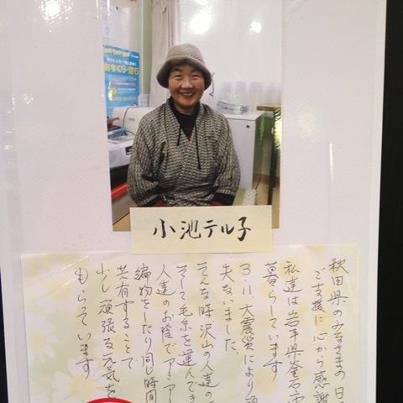 小池テル子
秋田県の皆さまの日
ご支援に心から感謝
私達は岩手県釜石
暮らしています
3.11大震災により
失ないました
そんな時沢山の人達の
そして毛糸を運んでき
人達のお陰でアー
編物をしたり同じ時間
共有することで
少し頑張る元気を
もらっています